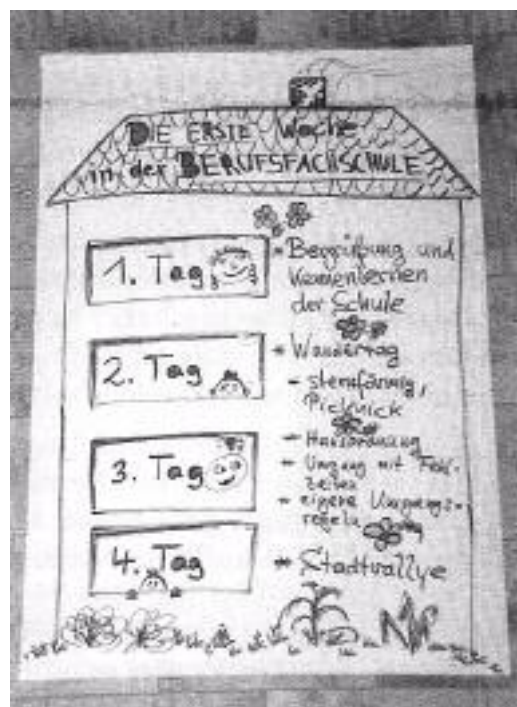 DIE ERSTE Woche
in der BERUFSFACHSCHULE
1. Tag
* Begrüßung und
Kennenlernen
der Schule
2. Tag
* Wandertag
- sternförmig,
Picknick
3. Tag
* Hausordnung
- Umgang mit Fehl-
zeiten
- eigene Umgangs-
regeln
4. Tag
* Stadtrallye